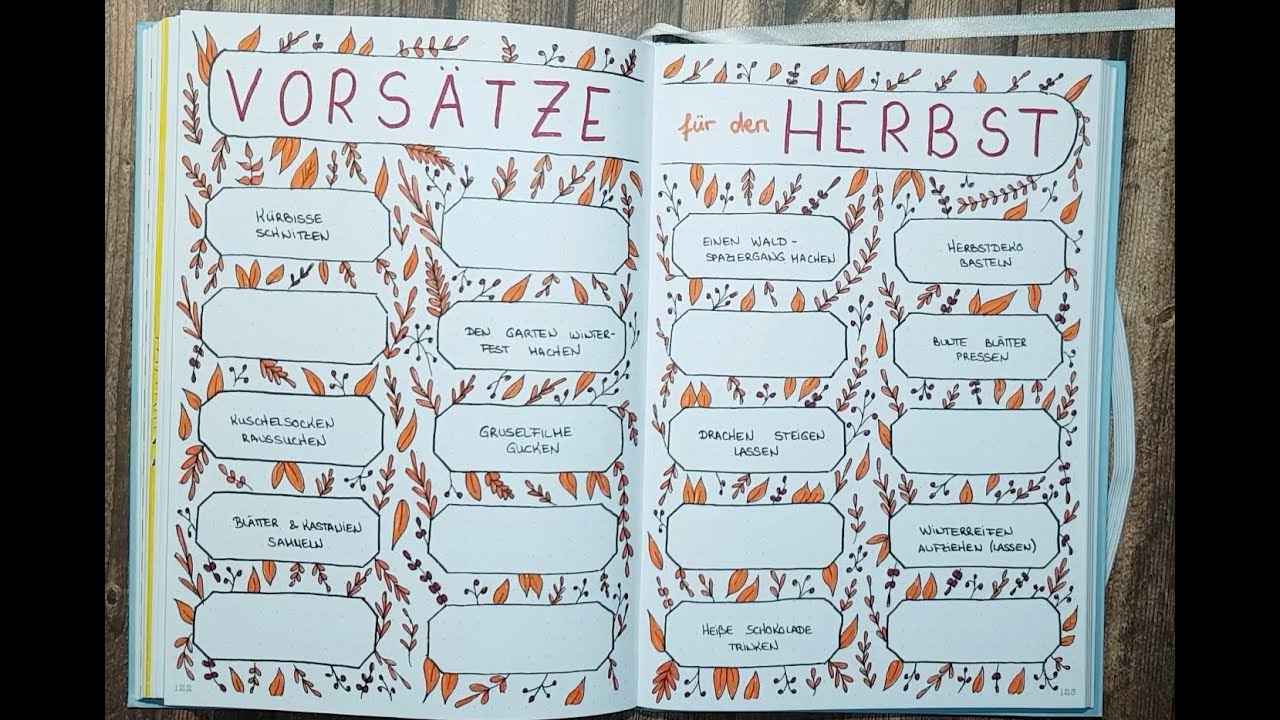 VORSÄTZE
für den HERBST
KÜRBISSE
SCHNITZEN
DEN GARTEN WINTER-
FEST MACHEN
KUSCHELSOCKEN
RAUSSUCHEN
GRUSELFILME
GUCKEN
BLÄTTER & KASTANIEN
SAMMELN
122
EINEN WALD-
SPAZIERGANG MACHEN
HERBSTDEKO
BASTELN
BUNTE BLÄTTER
PRESSEN
DRACHEN STEIGEN
LASSEN
WINTERREIFEN
AUFZIEHEN (LASSEN)
HEIßE SCHOKOLADE
TRINKEN
123